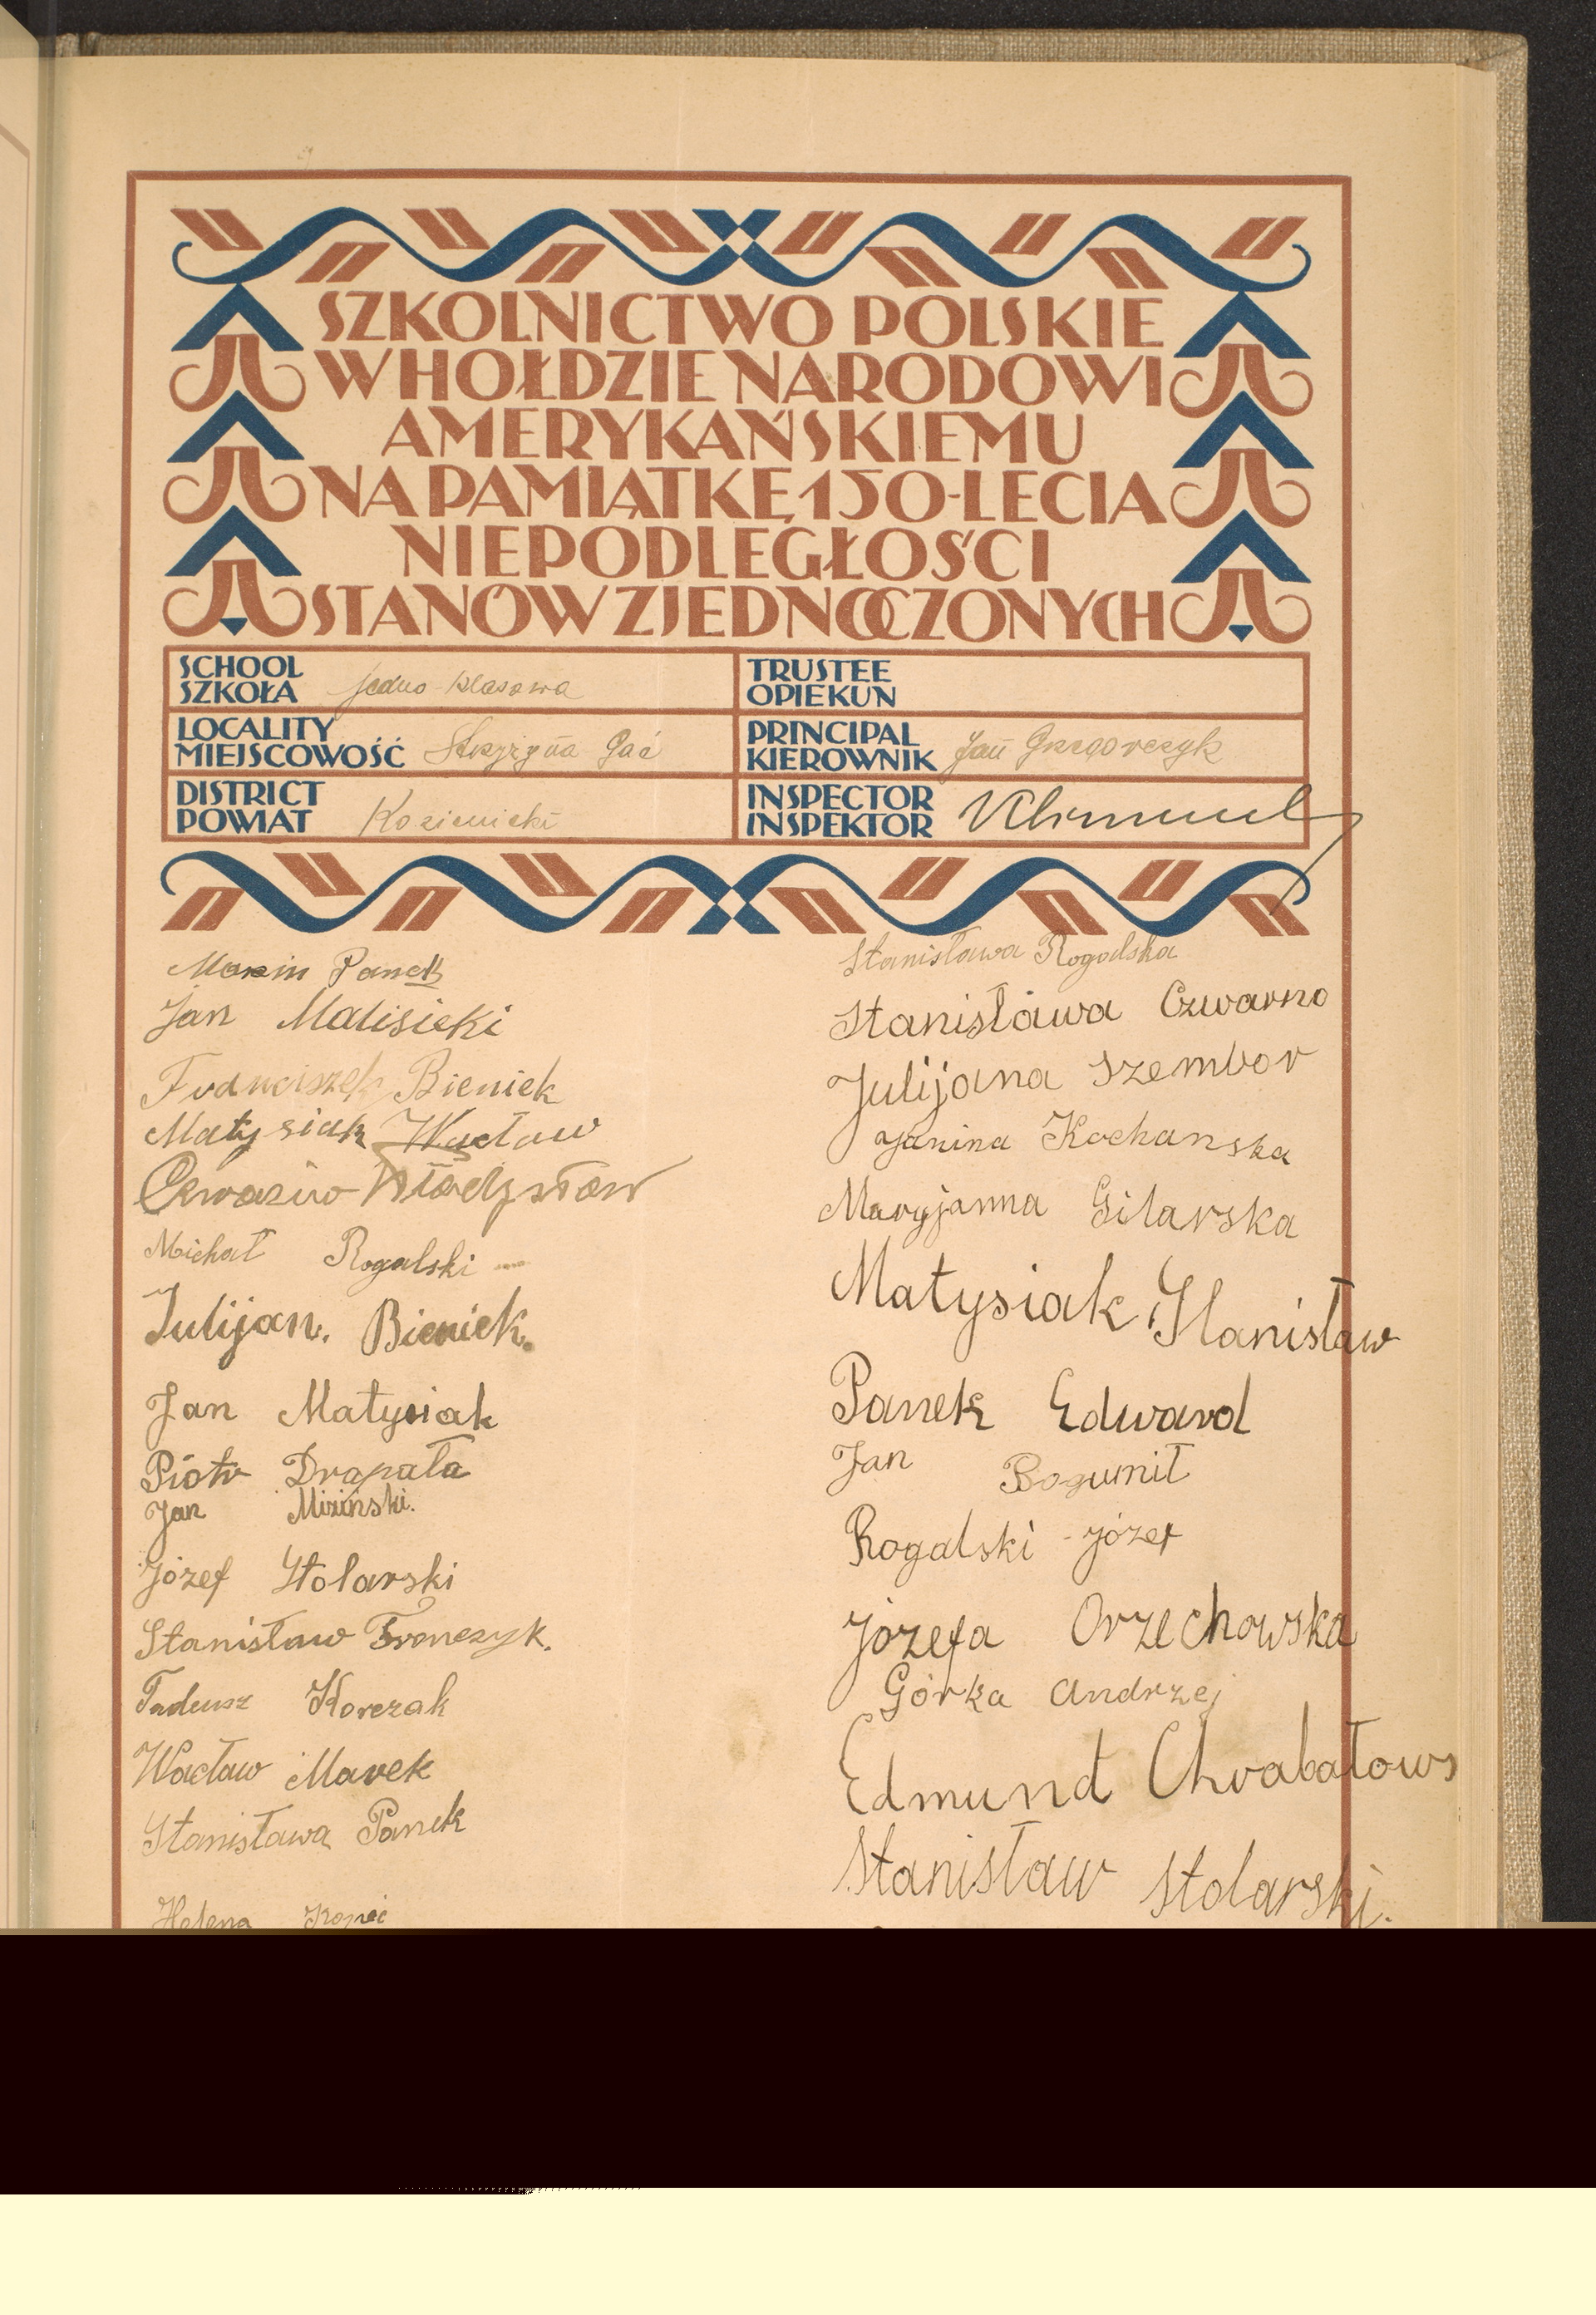 SZKOLNICTWO POLSKIE
W HOŁDZIE NARODOWI
AMERYKAŃSKIEMU
NA PAMIĄTKĘ 150-LECIA
NIEPODLEGŁOŚCI
STANÓW ZJEDNOCZONYCH
SCHOOL
SZKOŁA jedno-klasowa
TRUSTEE
OPIEKUN
LOCALITY
MIEJSCOWOŚĆ Gać
PRINCIPAL
KIEROWNIK Jan Grzegorczyk
DISTRICT
POWIAT Kozienicki
INSPECTOR
INSPEKTOR
Panek
Jan Malisieki
Franciszek Bieniek
Matysiak Wacław
Władysław
Michał Rogalski
Julijan. Bieniek.
Jan Matysiak
Piotr Drapała
Jan Miziński.
Józef Stolarski
Stanisław Fronczyk.
Tadeusz Korczak
Wacław Marek
Stanisława Panek
Helena Kopeć
Stanisława Rogodska
Stanisława Czwarno
Julijana Szembor
Janina Kochanska
Maryjanna Gilarska
Matysiak Stanisław
Panek Edward
Jan Bogumił
Rogalski Józef
Józefa Orzechowska
Górka Andrzej
Edmund Chrabałows
Stanisław Stolarski.